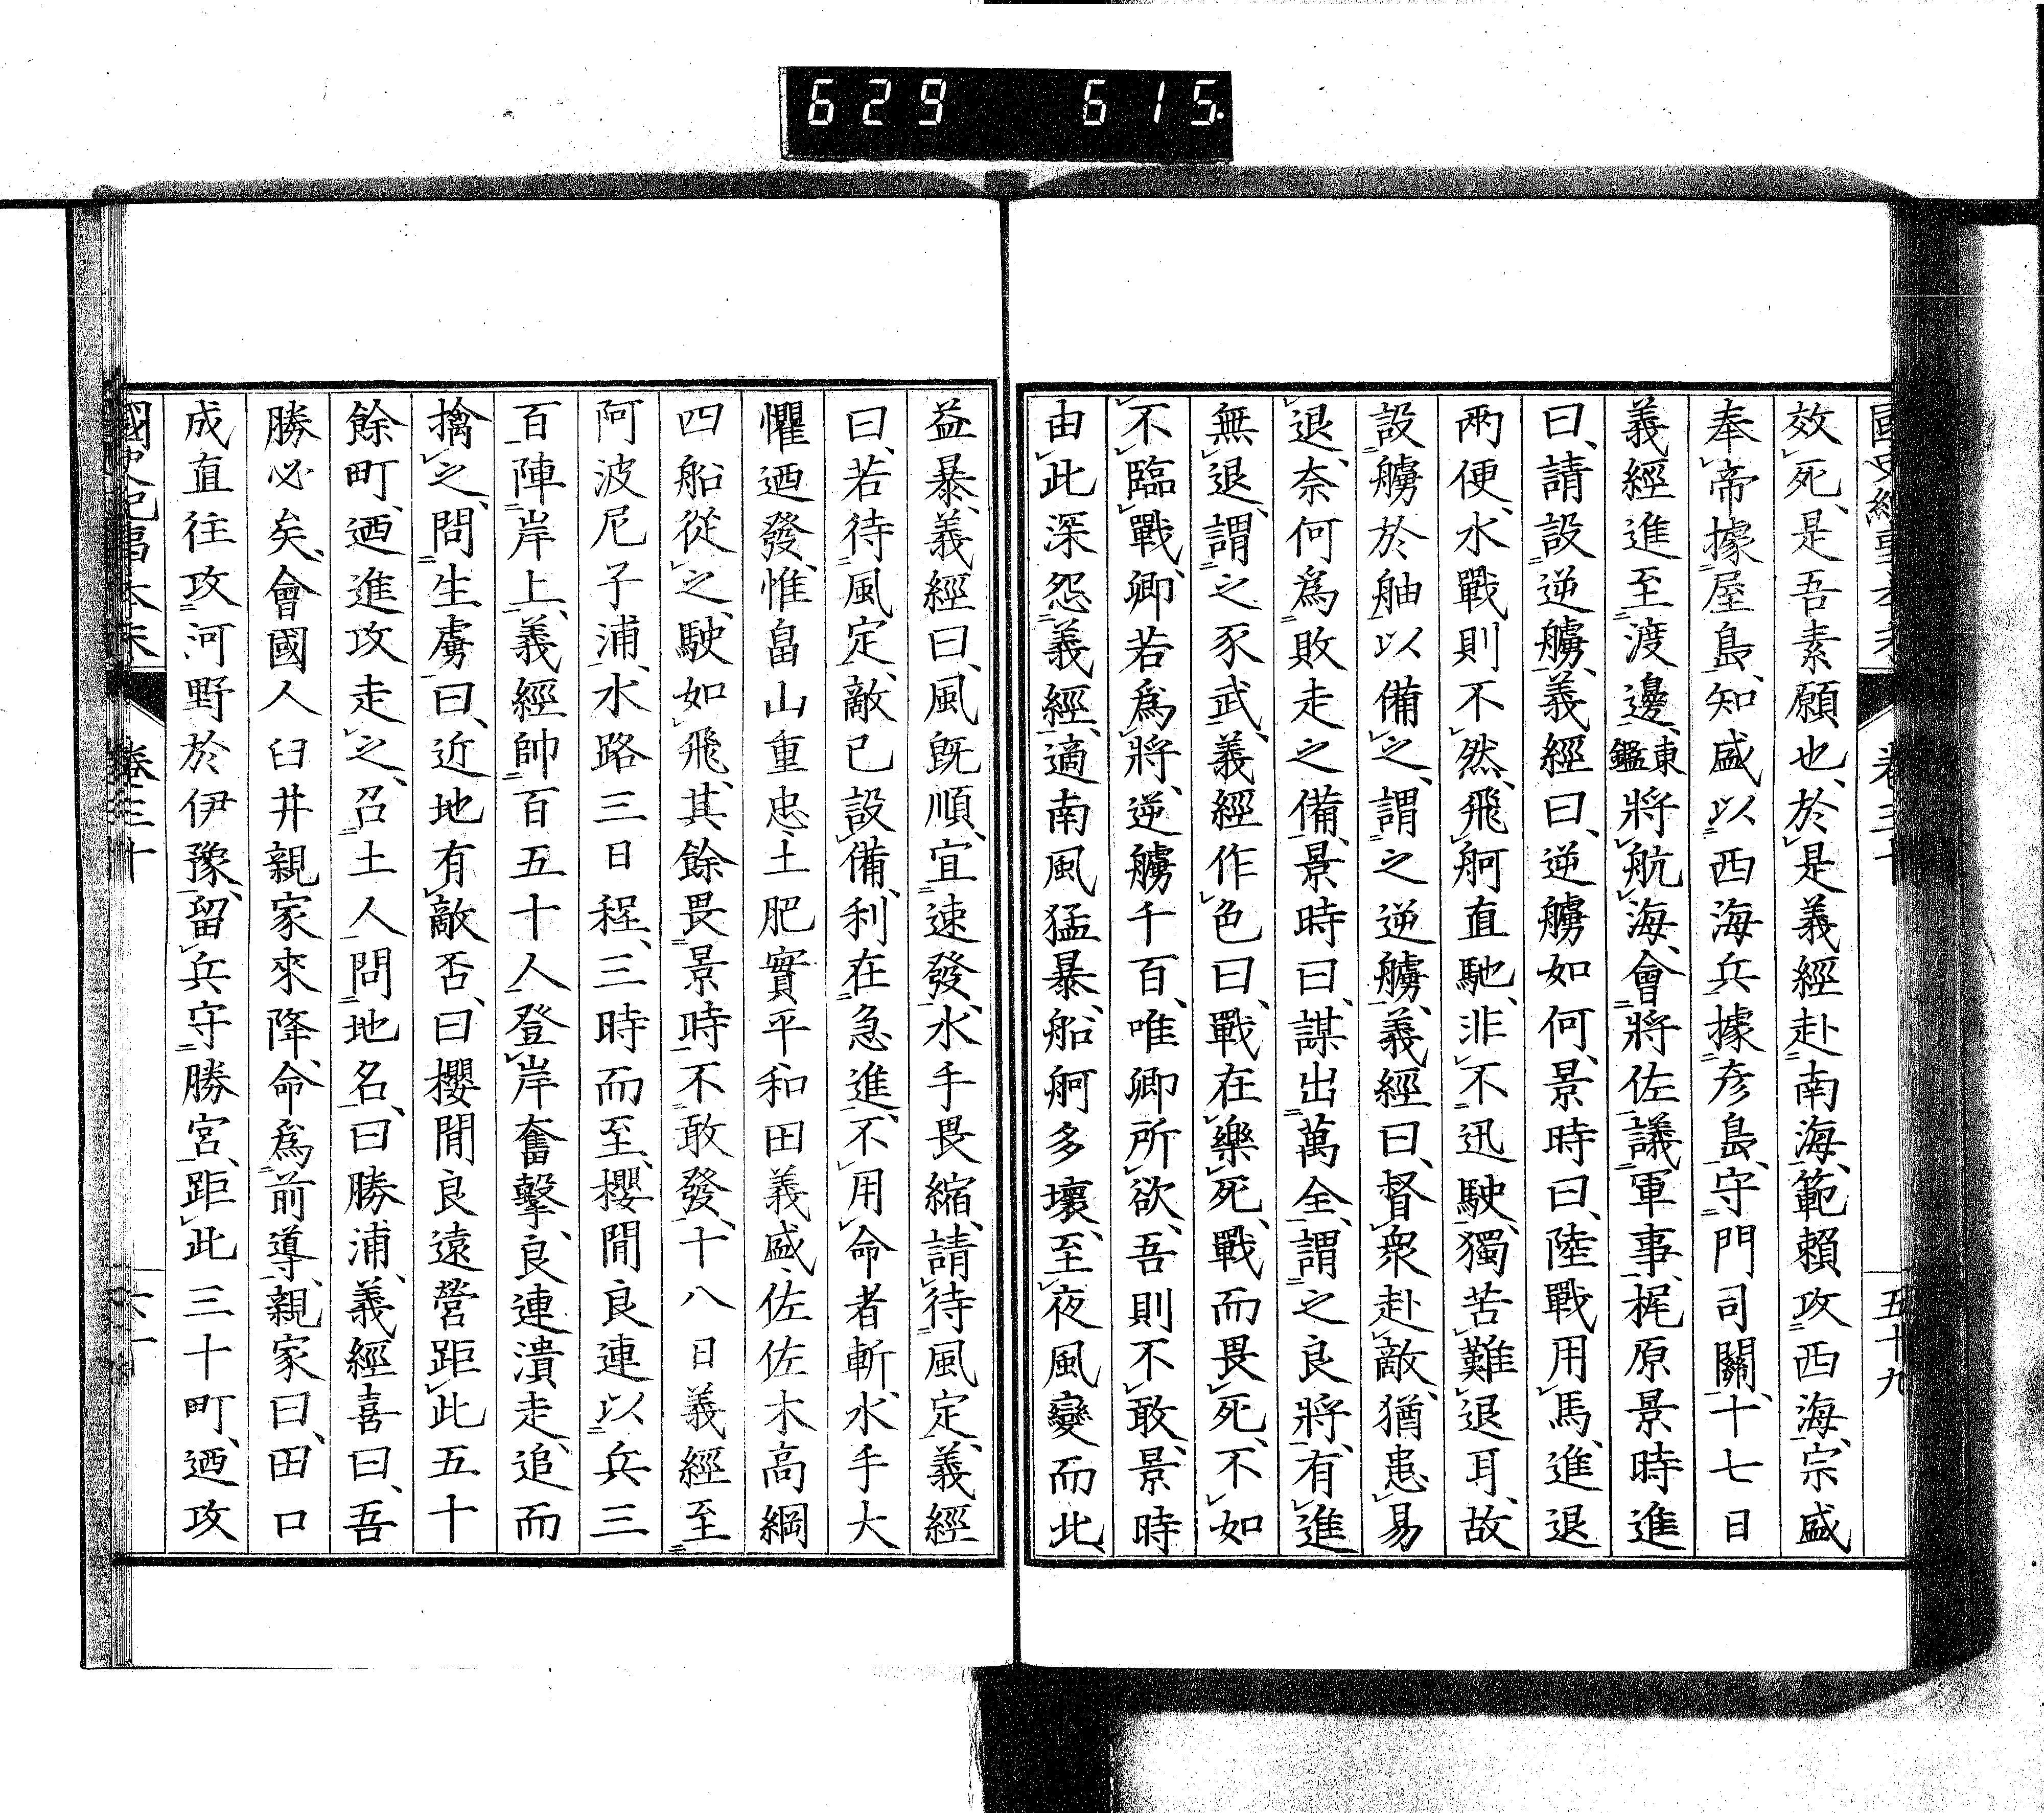 629 615
國史紀事本末 卷三十 五十九
效死、是吾素願也、於是義經赴南海、範賴攻西海、宗盛
奉帝據屋島、知盛以西海兵據彥島、守門司關、十七日
義經進至渡邊、東鑑將航海、會將佐議軍事、梶原景時進
曰、請設逆艣、義經曰、逆艣如何、景時曰、陸戰用馬、進退
兩便、水戰則不然、飛舸直馳、非不迅駛、獨苦難退耳、故
設艣於舳以備之、謂之逆艣、義經曰、督衆赴敵、猶患易
退、奈何爲敗走之備、景時曰、謀出萬全、謂之良將、有進
無退、謂之豕武、義經作色曰、戰在樂死、戰而畏死、不如
不臨戰、卿若爲將、逆艣千百、唯卿所欲、吾則不敢、景時
由此深怨義經、適南風猛暴、船舸多壞、至夜風變而北、
益暴、義經曰、風旣順、宜速發、水手畏縮、請待風定、義經
曰、若待風定、敵已設備、利在急進、不用命者斬、水手大
懼迺發、惟畠山重忠、土肥實平、和田義盛、佐佐木高綱
四船從之、駛如飛、其餘畏景時、不敢發、十八日義經至
阿波尼子浦、水路三日程、三時而至、櫻間良連以兵三
百陣岸上、義經帥百五十人登岸奮擊、良連潰走、追而
擒之、問生虜曰、近地有敵否、曰櫻間良遠營距此五十
餘町、迺進攻走之、召土人問地名、曰勝浦、義經喜曰、吾
勝必矣、會國人臼井親家來降、命爲前導、親家曰、田口
成直往攻河野於伊豫、留兵守勝宮、距此三十町、迺攻
國史紀事本末 卷三十